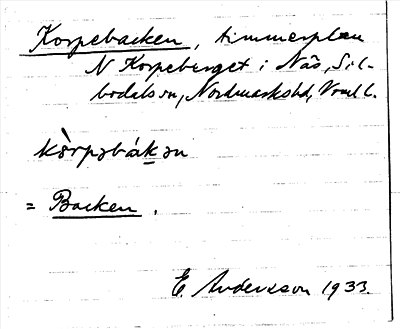 Korpebacken, timmerplan
N Korpeberget i Näs, Sil-
bodals sn, Nordmarks hd, Vrml l.
kòrpəbákən
= Backen.
E. Andersson 1933.